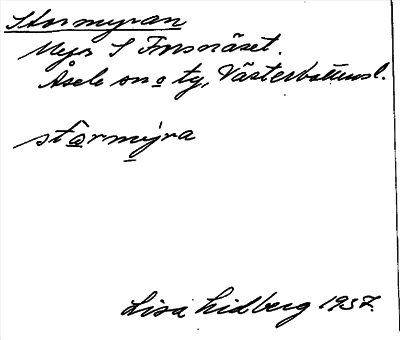 Stormyran
Myr S Forsnäset.
Åsele sn o ty, Västerbottensl.
stårmyra
Lisa Lidberg 1937.